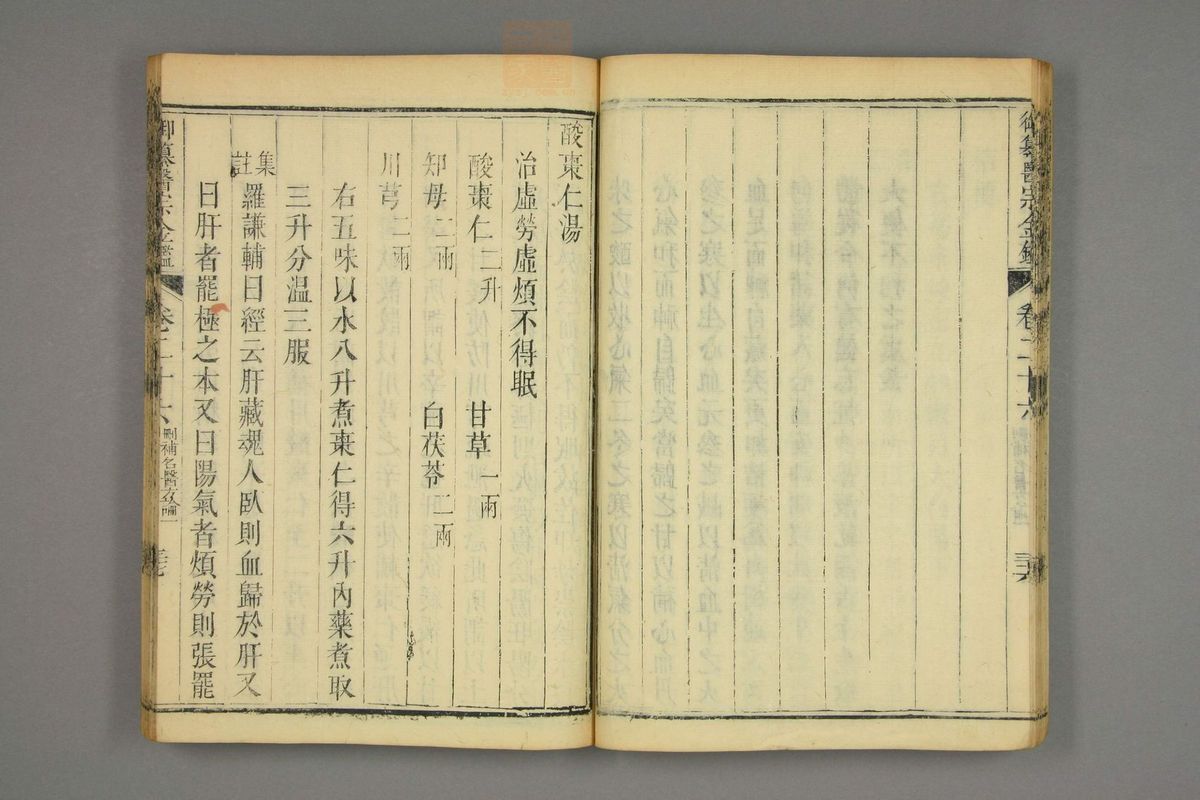 御纂醫宗金鑑 卷二十六 三六
酸棗仁湯
治虛勞虛煩不得眠
酸棗仁二升 甘草一兩
知母二兩 白茯苓二兩
川芎二兩
右五味以水八升煮棗仁得六升內藥煮取
三升分溫三服
集註 羅謙輔曰經云肝藏魂人臥則血歸於肝又
曰肝者罷極之本又曰陽氣者煩勞則張罷
御纂醫宗金鑑 卷二十六 刪補名醫方論一 三七